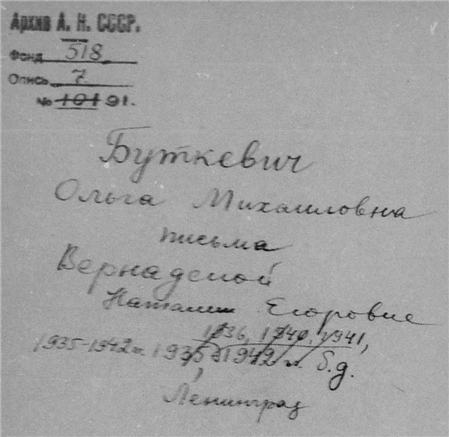 Архив А. Н. СССР.
Фонд 518
Опись 7
№ 101 91.
Буткевич
Ольга Михаиловна
письма
Вернадской
Наталии Егоровне
1936, 1940, 1941,
1935-1942 гг. 1935 1942 гг. б.д.
Ленинград